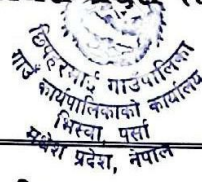 छिपहरमाई गाउँपालिका
गाउँ कार्यपालिकाको कार्यालय
भिस्वा, पर्सा
मधेश प्रदेश, नेपाल